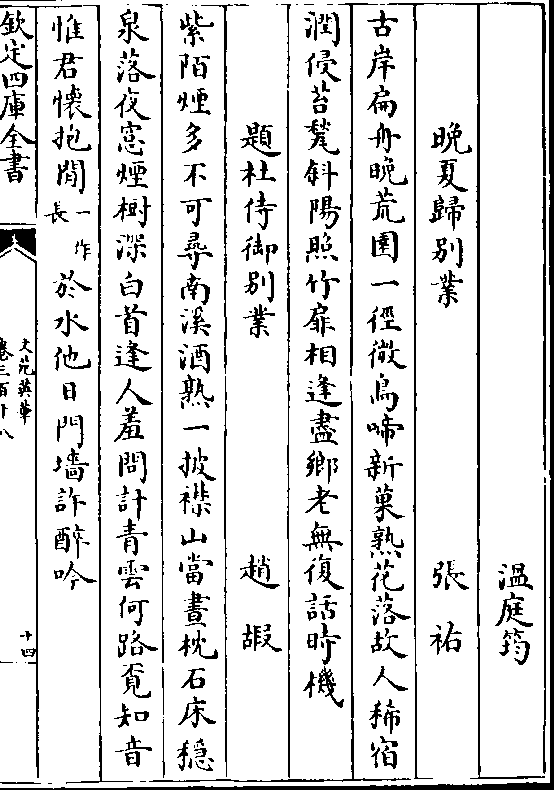 溫庭筠
晚夏歸別業 張祐
古岸扁舟晚荒園一徑微鳥啼新菓熟花落故人稀宿
潤侵苔甃斜陽照竹扉相逢盡鄉老無復話時機
題杜侍御別業 趙嘏
紫陌煙多不可尋南溪酒熟一披襟山當晝枕石床穩
泉落夜窓煙樹深白首逢人羞問計青雲何路覓知音
惟君懷抱閒一作長於水他日門墻許醉吟
欽定四庫全書
文苑英華
卷三百十八
十四